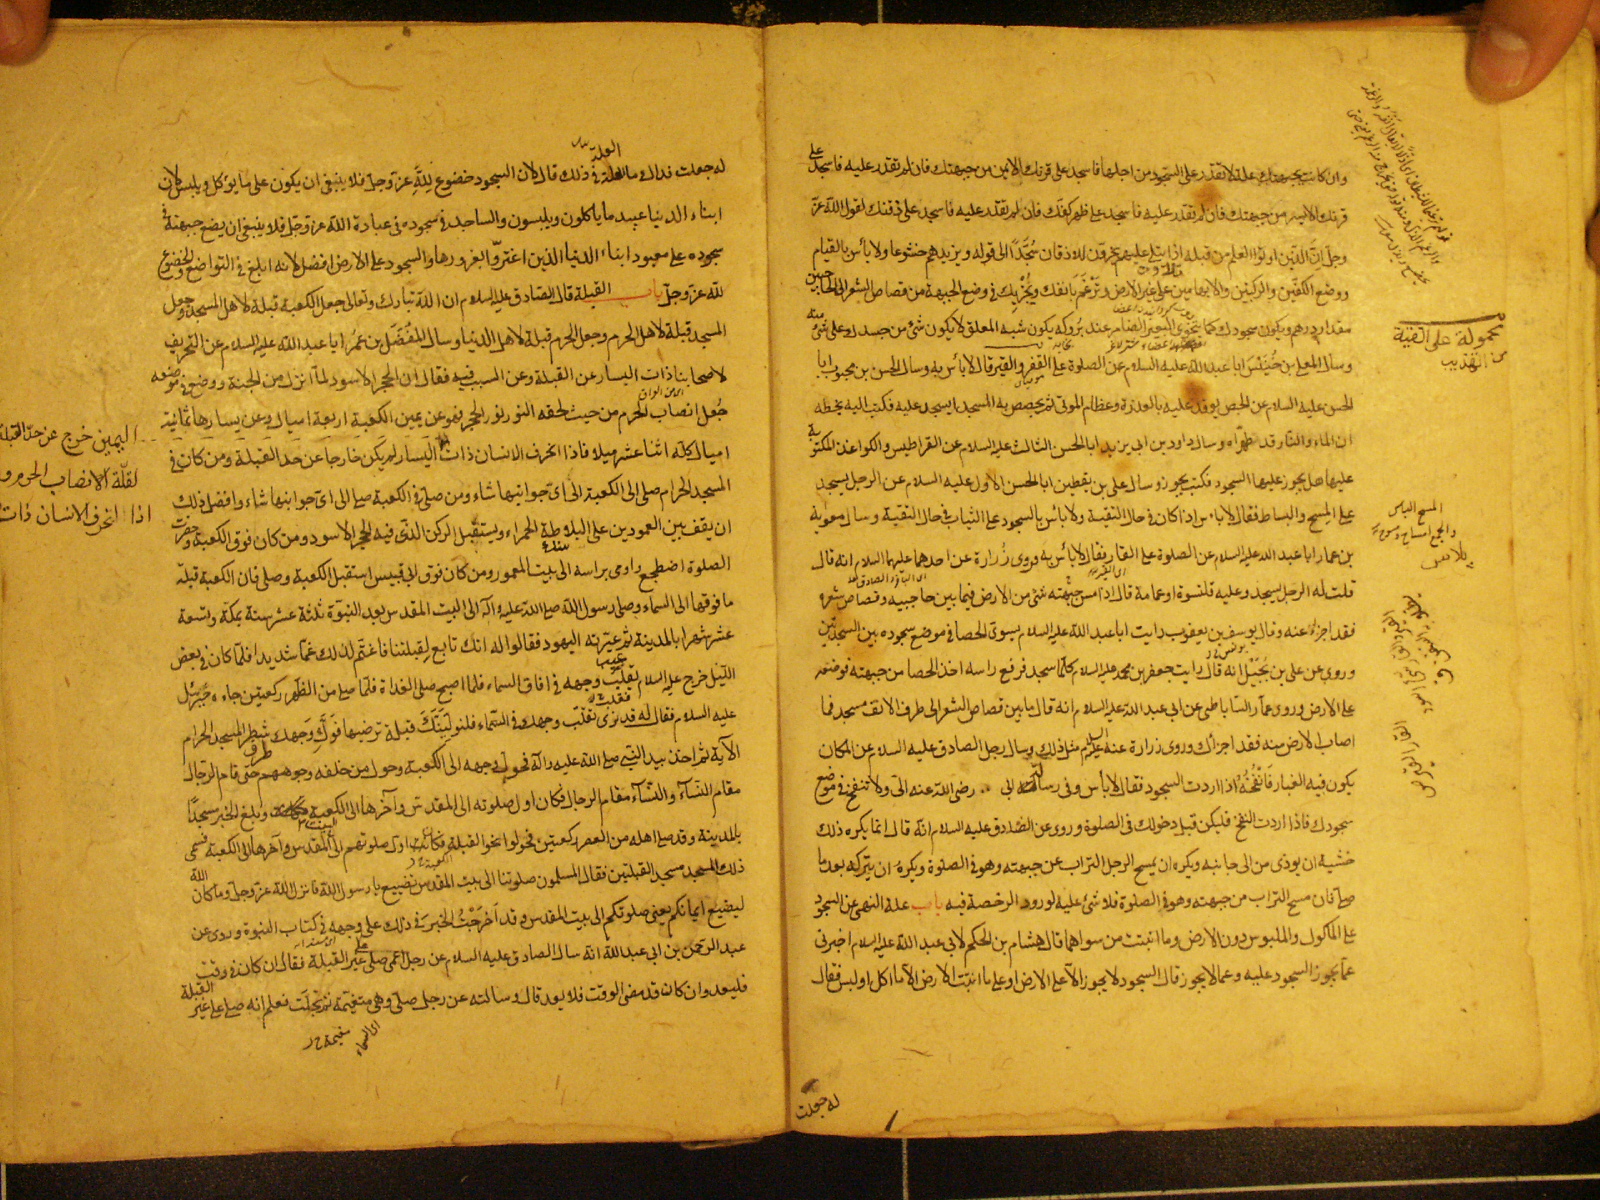 وان كانت بجبهتك علة لا تقدر على السجود من اجلها فاسجد على قرنك الايمن من جبهتك فان لم تقدر عليه فاسجد على
قرنك الايسر من جبهتك فان لم تقدر عليه فاسجد على ظهر كفك فان لم تقدر عليه فاسجد على ذقنك لقول الله عز
وجل ان الذين اوتوا العلم من قبله اذا يتلى عليهم يخرون للاذقان سجدا الى قوله ويزيدهم خشوعا ولا بأس بالقيام
ووضع الكفين والركبتين والابهامين على غير الارض وترغم بانفك ويجزيك في وضع الجبهة من قصاص الشعر الى الحاجبين
مقدار درهم ويكون سجودك كما يتخوى البعير الضامر عند بروكه يكون شبه المعلق لا يكون شئ من جسدك على شئ منه
وسأل المعلى بن خنيس ابا عبد الله عليه السلام عن الصلوة على القفر والقير فقال لا بأس به وسأل الحسن بن محبوب ابا
الحسن عليه السلام عن الجص يوقد عليه بالعذرة وعظام الموتى ثم يجصص به المسجد ايسجد عليه فكتب اليه بخطه
ان الماء والنار قد طهراه وسأل داود بن ابى يزيد ابا الحسن الثالث عليه السلام عن القراطيس والكواغذ المكتوبة
عليها هل يجوز عليها السجود فكتب يجوز وسأل على بن يقطين ابا الحسن الاول عليه السلام عن الرجل يسجد
على المسح والبساط فقال لا بأس اذا كان في حال التقية ولا بأس بالسجود على الثياب في حال التقية وسأل معوية
بن عمار ابا عبد الله عليه السلام عن الصلوة على القار فقال لا بأس به وروى زرارة عن احدهما عليهما السلام انه قال
قلت له الرجل يسجد وعليه قلنسوة او عمامة قال اذا مس جبهته شئ من الارض فيما بين حاجبيه وقصاص شعره
فقد اجزأ عنه وقال يوسف بن يعقوب رايت ابا عبد الله عليه السلام يسوى الحصا في موضع سجوده بين السجدتين
وروى عن على بن بجيل انه قال رايت جعفر بن محمد عليه السلام كلما سجد فرفع راسه اخذ الحصا من جبهته فوضعه
على الارض وروى عمار الساباطى عن ابى عبد الله عليه السلام انه قال ما بين قصاص الشعر الى طرف الانف مسجد فما
اصاب الارض منه فقد اجزأك وروى زرارة عنه عليه السلام مثل ذلك وسأل رجل الصادق عليه السلام عن المكان
يكون فيه الغبار فانفخه اذا اردت السجود فقال لا بأس وفى رسالة ابى رضى الله عنه الى ولا تنفخ في موضع
سجودك فاذا اردت النفخ فليكن قبل دخولك في الصلوة وروى عن الصادق عليه السلام انه قال انما يكره ذلك
خشية ان يوذى من الى جانبه ويكره ان يمسح الرجل التراب عن جبهته وهو في الصلوة ويكره ان يتركه بعد ما
صلى فان مسح التراب من جبهته وهو في الصلوة فلا شئ عليه لورود الرخصة فيه باب علة النهى عن السجود
على المأكول والملبوس دون الارض وما انبتت من سواهما قال هشام بن الحكم لابى عبد الله عليه السلام اخبرنى
عما يجوز السجود عليه وعما لا يجوز قال السجود لا يجوز الا على الارض او على ما انبتت الارض الا ما اكل او لبس فقال
محمولة على التقية
من التهذيب
المسح البلاس
له جعلت
له جعلت فداك ما العلة في ذلك قال لان السجود خضوع لله عز وجل فلا ينبغى ان يكون على ما يؤكل ويلبس لان
ابناء الدنيا عبيد ما ياكلون ويلبسون والساجد في سجوده في عبادة الله عز وجل فلا ينبغى ان يضع جبهته في
سجوده على معبود ابناء الدنيا الذين اغتروا بغرورها والسجود على الارض افضل لانه ابلغ في التواضع والخضوع
لله عز وجل باب القبلة قال الصادق عليه السلام ان الله تبارك وتعالى جعل الكعبة قبلة لاهل المسجد وجعل
المسجد قبلة لاهل الحرم وجعل الحرم قبلة لاهل الدنيا وسأل المفضل بن عمر ابا عبد الله عليه السلام عن التحريف
لاصحابنا ذات اليسار عن القبلة وعن السبب فيه فقال ان الحجر الاسود لما انزل من الجنة ووضع في موضعه
جعل انصاب الحرم من حيث لحقه النور نور الحجر فهو عن يمين الكعبة اربعة اميال وعن يسارها ثمانية
اميال كله اثنا عشر ميلا فاذا انحرف الانسان ذات اليسار لم يكن خارجا عن حد القبلة ومن كان في
المسجد الحرام صلى الى الكعبة الى اى جوانبها شاء ومن صلى في الكعبة صلى الى اى جوانبها شاء وافضل ذلك
ان يقف بين العمودين على البلاطة الحمراء ويستقبل الركن الذى فيه الحجر الاسود ومن كان فوق الكعبة وحضرت
الصلوة اضطجع واومى براسه الى بيت المعمور ومن كان فوق ابى قبيس استقبل الكعبة وصلى فان الكعبة قبلة
ما فوقها الى السماء وصلى رسول الله صلى الله عليه وآله الى البيت المقدس بعد النبوة ثلثة عشر سنة بمكة وتسعة
عشر شهرا بالمدينة ثم عيرته اليهود فقالوا له انك تابع لقبلتنا فاغتم لذلك غما شديدا فلما كان في بعض
الليل خرج عليه السلام يقلب وجهه في افاق السماء فلما اصبح صلى الغداة فلما صلى من الظهر ركعتين جاءه جبرئيل
عليه السلام فقال له قد نرى تقلب وجهك في السماء فلنولينك قبلة ترضيها فول وجهك شطر المسجد الحرام
الآية ثم اخذ بيد النبى صلى الله عليه وآله فحول وجهه الى الكعبة وحول من خلفه وجوههم حتى قام الرجال
مقام النساء والنساء مقام الرجال فكان اول صلوته الى المقدس وآخرها الى الكعبة وبلغ الخبر مسجدا
بالمدينة وقد صلى اهله من العصر ركعتين فحولوا نحو القبلة فكان اول صلوتهم الى المقدس وآخرها الى الكعبة فسمى
ذلك المسجد مسجد القبلتين فقال المسلمون صلوتنا الى بيت المقدس تضيع يا رسول الله فانزل الله عز وجل وما كان الله
ليضيع ايمانكم يعنى صلوتكم الى بيت المقدس وقد اخرجت الخبر في ذلك على وجهه في كتاب النبوة وروى عن
عبد الرحمن بن ابى عبد الله انه سأل الصادق عليه السلام عن رجل اعمى صلى على غير القبلة فقال ان كان في وقت
فليعد وان كان قد مضى الوقت فلا يعد قال وسالته عن رجل صلى وهى متغيمة ثم تجلت فعلم انه صلى على غير القبلة
اليمين خرج عن حد القبلة
لقلة الانصاب الحرم و
اذا انحرف الانسان ذات
اى السماء